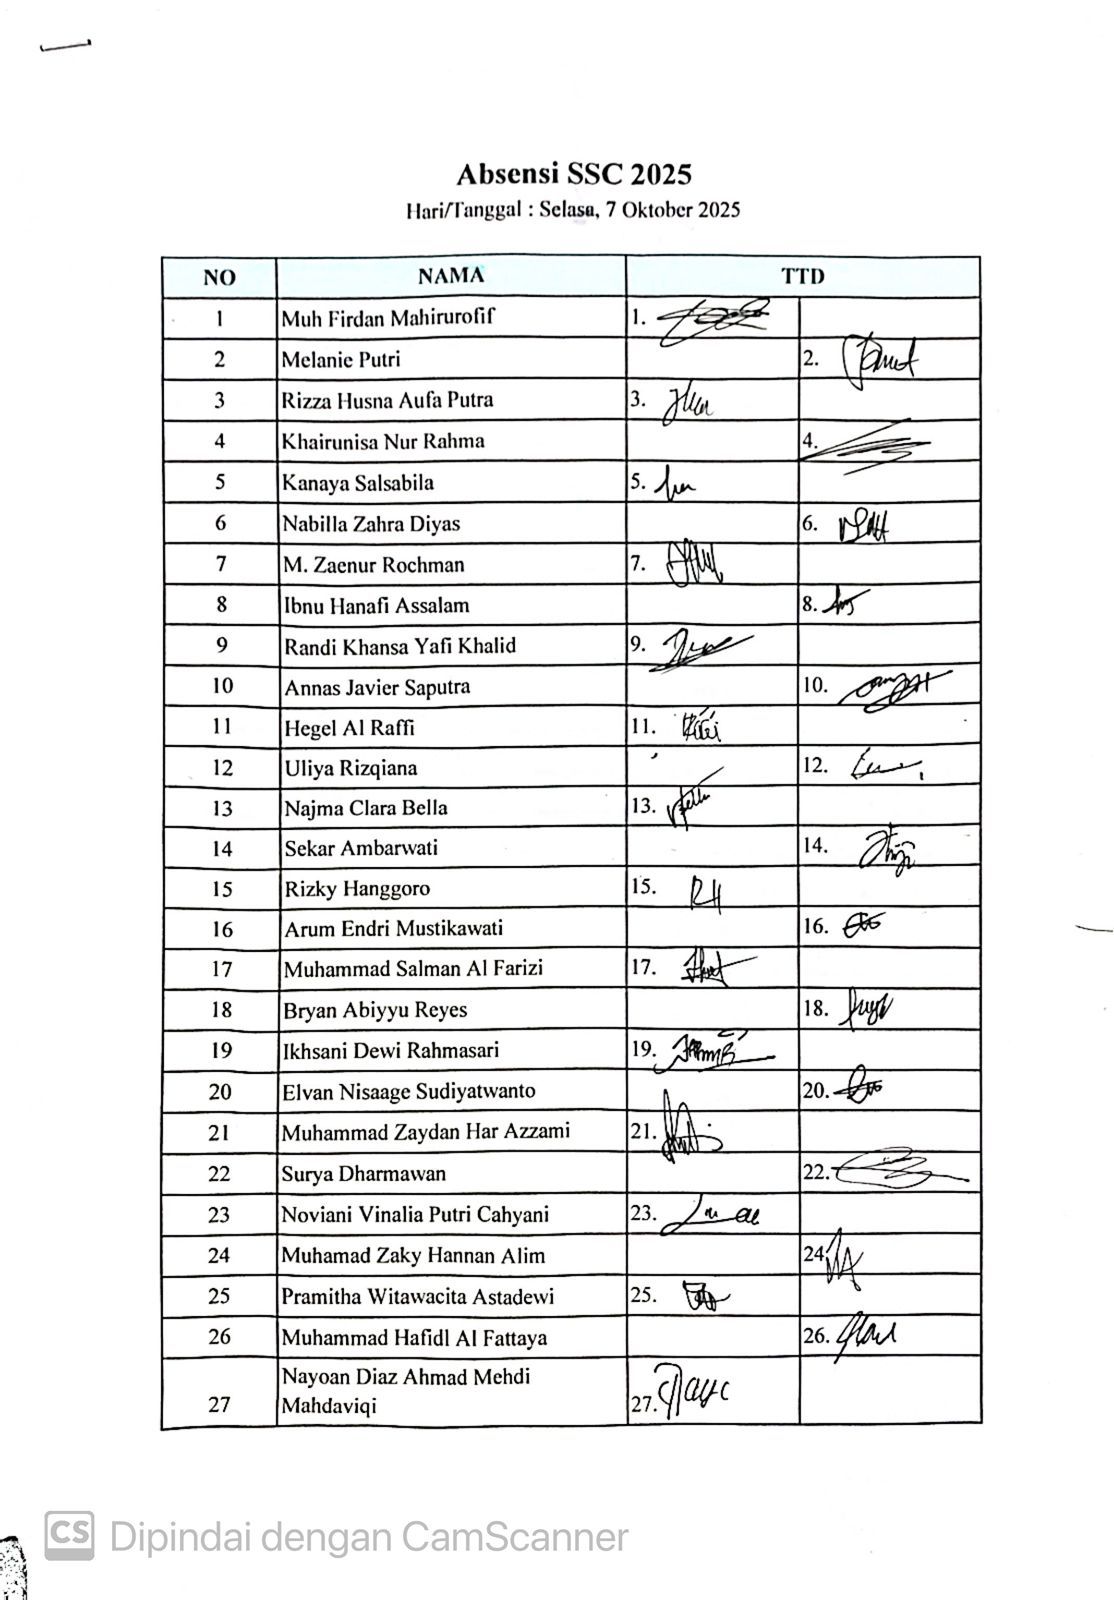 Absensi SSC 2025
Hari/Tanggal : Selasa, 7 Oktober 2025
NO NAMA TTD
1 Muh Firdan Mahirurofif 1.
2 Melanie Putri 2.
3 Rizza Husna Aufa Putra 3.
4 Khairunisa Nur Rahma 4.
5 Kanaya Salsabila 5.
6 Nabilla Zahra Diyas 6.
7 M. Zaenur Rochman 7.
8 Ibnu Hanafi Assalam 8.
9 Randi Khansa Yafi Khalid 9.
10 Annas Javier Saputra 10.
11 Hegel Al Raffi 11.
12 Uliya Rizqiana 12.
13 Najma Clara Bella 13.
14 Sekar Ambarwati 14.
15 Rizky Hanggoro 15. RH
16 Arum Endri Mustikawati 16.
17 Muhammad Salman Al Farizi 17.
18 Bryan Abiyyu Reyes 18.
19 Ikhsani Dewi Rahmasari 19.
20 Elvan Nisaage Sudiyatwanto 20.
21 Muhammad Zaydan Har Azzami 21.
22 Surya Dharmawan 22.
23 Noviani Vinalia Putri Cahyani 23.
24 Muhamad Zaky Hannan Alim 24.
25 Pramitha Witawacita Astadewi 25.
26 Muhammad Hafidl Al Fattaya 26.
Nayoan Diaz Ahmad Mehdi
27 Mahdaviqi 27.
CS Dipindai dengan CamScanner